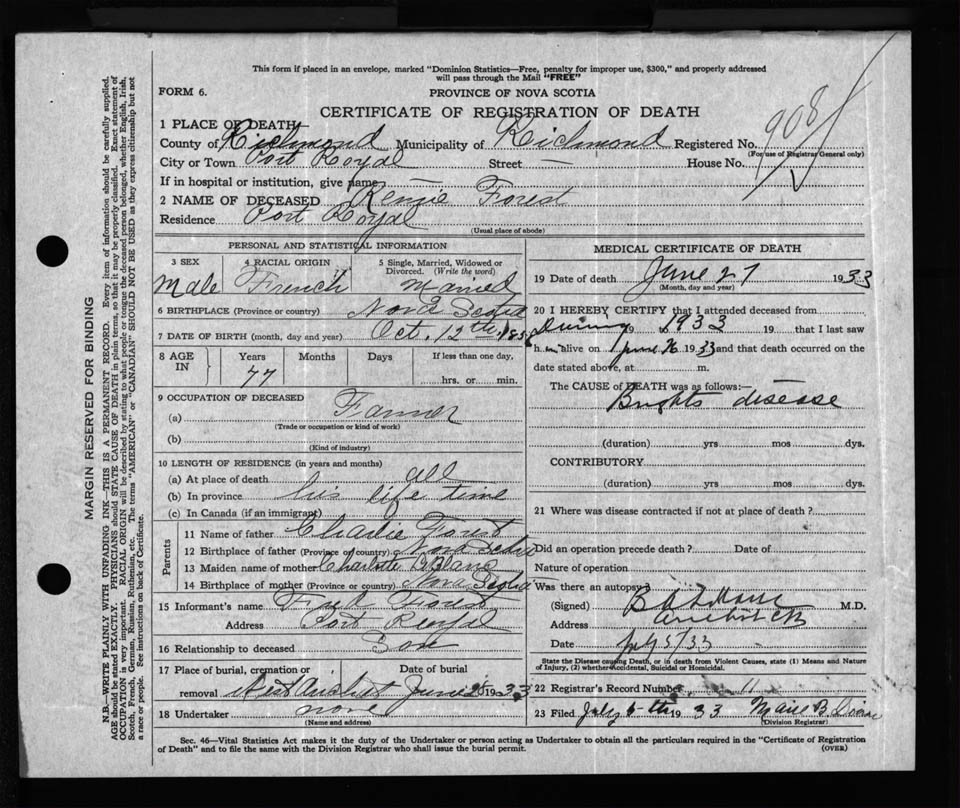 This form if placed in an envelope, marked "Dominion Statistics—Free, penalty for improper use, $300," and properly addressed
will pass through the Mail "FREE"
FORM 6. PROVINCE OF NOVA SCOTIA
CERTIFICATE OF REGISTRATION OF DEATH
1 PLACE OF DEATH—
County of Richmond Municipality of Richmond Registered No. 908
(For use of Registrar General only)
City or Town Port Royal Street — House No.
If in hospital or institution, give name —
2 NAME OF DECEASED Forest
Residence Port Royal
(Usual place of abode)
PERSONAL AND STATISTICAL INFORMATION
3 SEX 4 RACIAL ORIGIN 5 Single, Married, Widowed or Divorced. (Write the word)
Male French Married
6 BIRTHPLACE (Province or country) Nova Scotia
7 DATE OF BIRTH (month, day and year) Oct. 12th
8 AGE IN Years Months Days If less than one day,
77 hrs. or min.
9 OCCUPATION OF DECEASED
(a) Farmer
(Trade or occupation or kind of work)
(b)
(Kind of industry)
10 LENGTH OF RESIDENCE (in years and months)
(a) At place of death all
(b) In province his life time
(c) In Canada (if an immigrant)
Parents
11 Name of father Charlie Forest
12 Birthplace of father (Province or country) Nova Scotia
13 Maiden name of mother Charlotte
14 Birthplace of mother (Province or country) Nova Scotia
15 Informant's name Forest
Address Port Royal
16 Relationship to deceased Son
17 Place of burial, cremation or removal Date of burial
West Arichat June 1933
18 Undertaker none
(Name and address)
MEDICAL CERTIFICATE OF DEATH
19 Date of death June 27 1933
(Month, day and year)
20 I HEREBY CERTIFY that I attended deceased from
During 19 1933 19 that I last saw
h im alive on June 26 1933 and that death occurred on the
date stated above, at m.
The CAUSE of DEATH was as follows:—
Brights disease
(duration) yrs mos dys.
CONTRIBUTORY
(duration) yrs mos dys.
21 Where was disease contracted if not at place of death?
Did an operation precede death? Date of
Nature of operation
Was there an autopsy?
(Signed) M.D.
Address Arichat CB
Date July 5/33
State the Disease causing Death, or in death from Violent Causes, state (1) Means and Nature
of Injury, (2) whether Accidental, Suicidal or Homicidal.
22 Registrar's Record Number 11
23 Filed July 6th 1933 B.
(Division Registrar)
Sec. 46—Vital Statistics Act makes it the duty of the Undertaker or person acting as Undertaker to obtain all the particulars required in the "Certificate of Registration
of Death" and to file the same with the Division Registrar who shall issue the burial permit. (OVER)
MARGIN RESERVED FOR BINDING
N.B.—WRITE PLAINLY WITH UNFADING INK—THIS IS A PERMANENT RECORD. Every item of information should be carefully supplied.
AGE should be stated EXACTLY. PHYSICIANS should STATE CAUSE OF DEATH in plain terms, so that it may be properly classified. Exact statement of
OCCUPATION is very important. RACIAL ORIGIN will be described by stating to what people or tongue the deceased person belonged, whether English, Irish,
Scotch, French, German, Russian, Ruthenian, etc. The terms "AMERICAN" or "CANADIAN" SHOULD NOT BE USED as they express citizenship but not
a race or people. See instructions on back of Certificate.